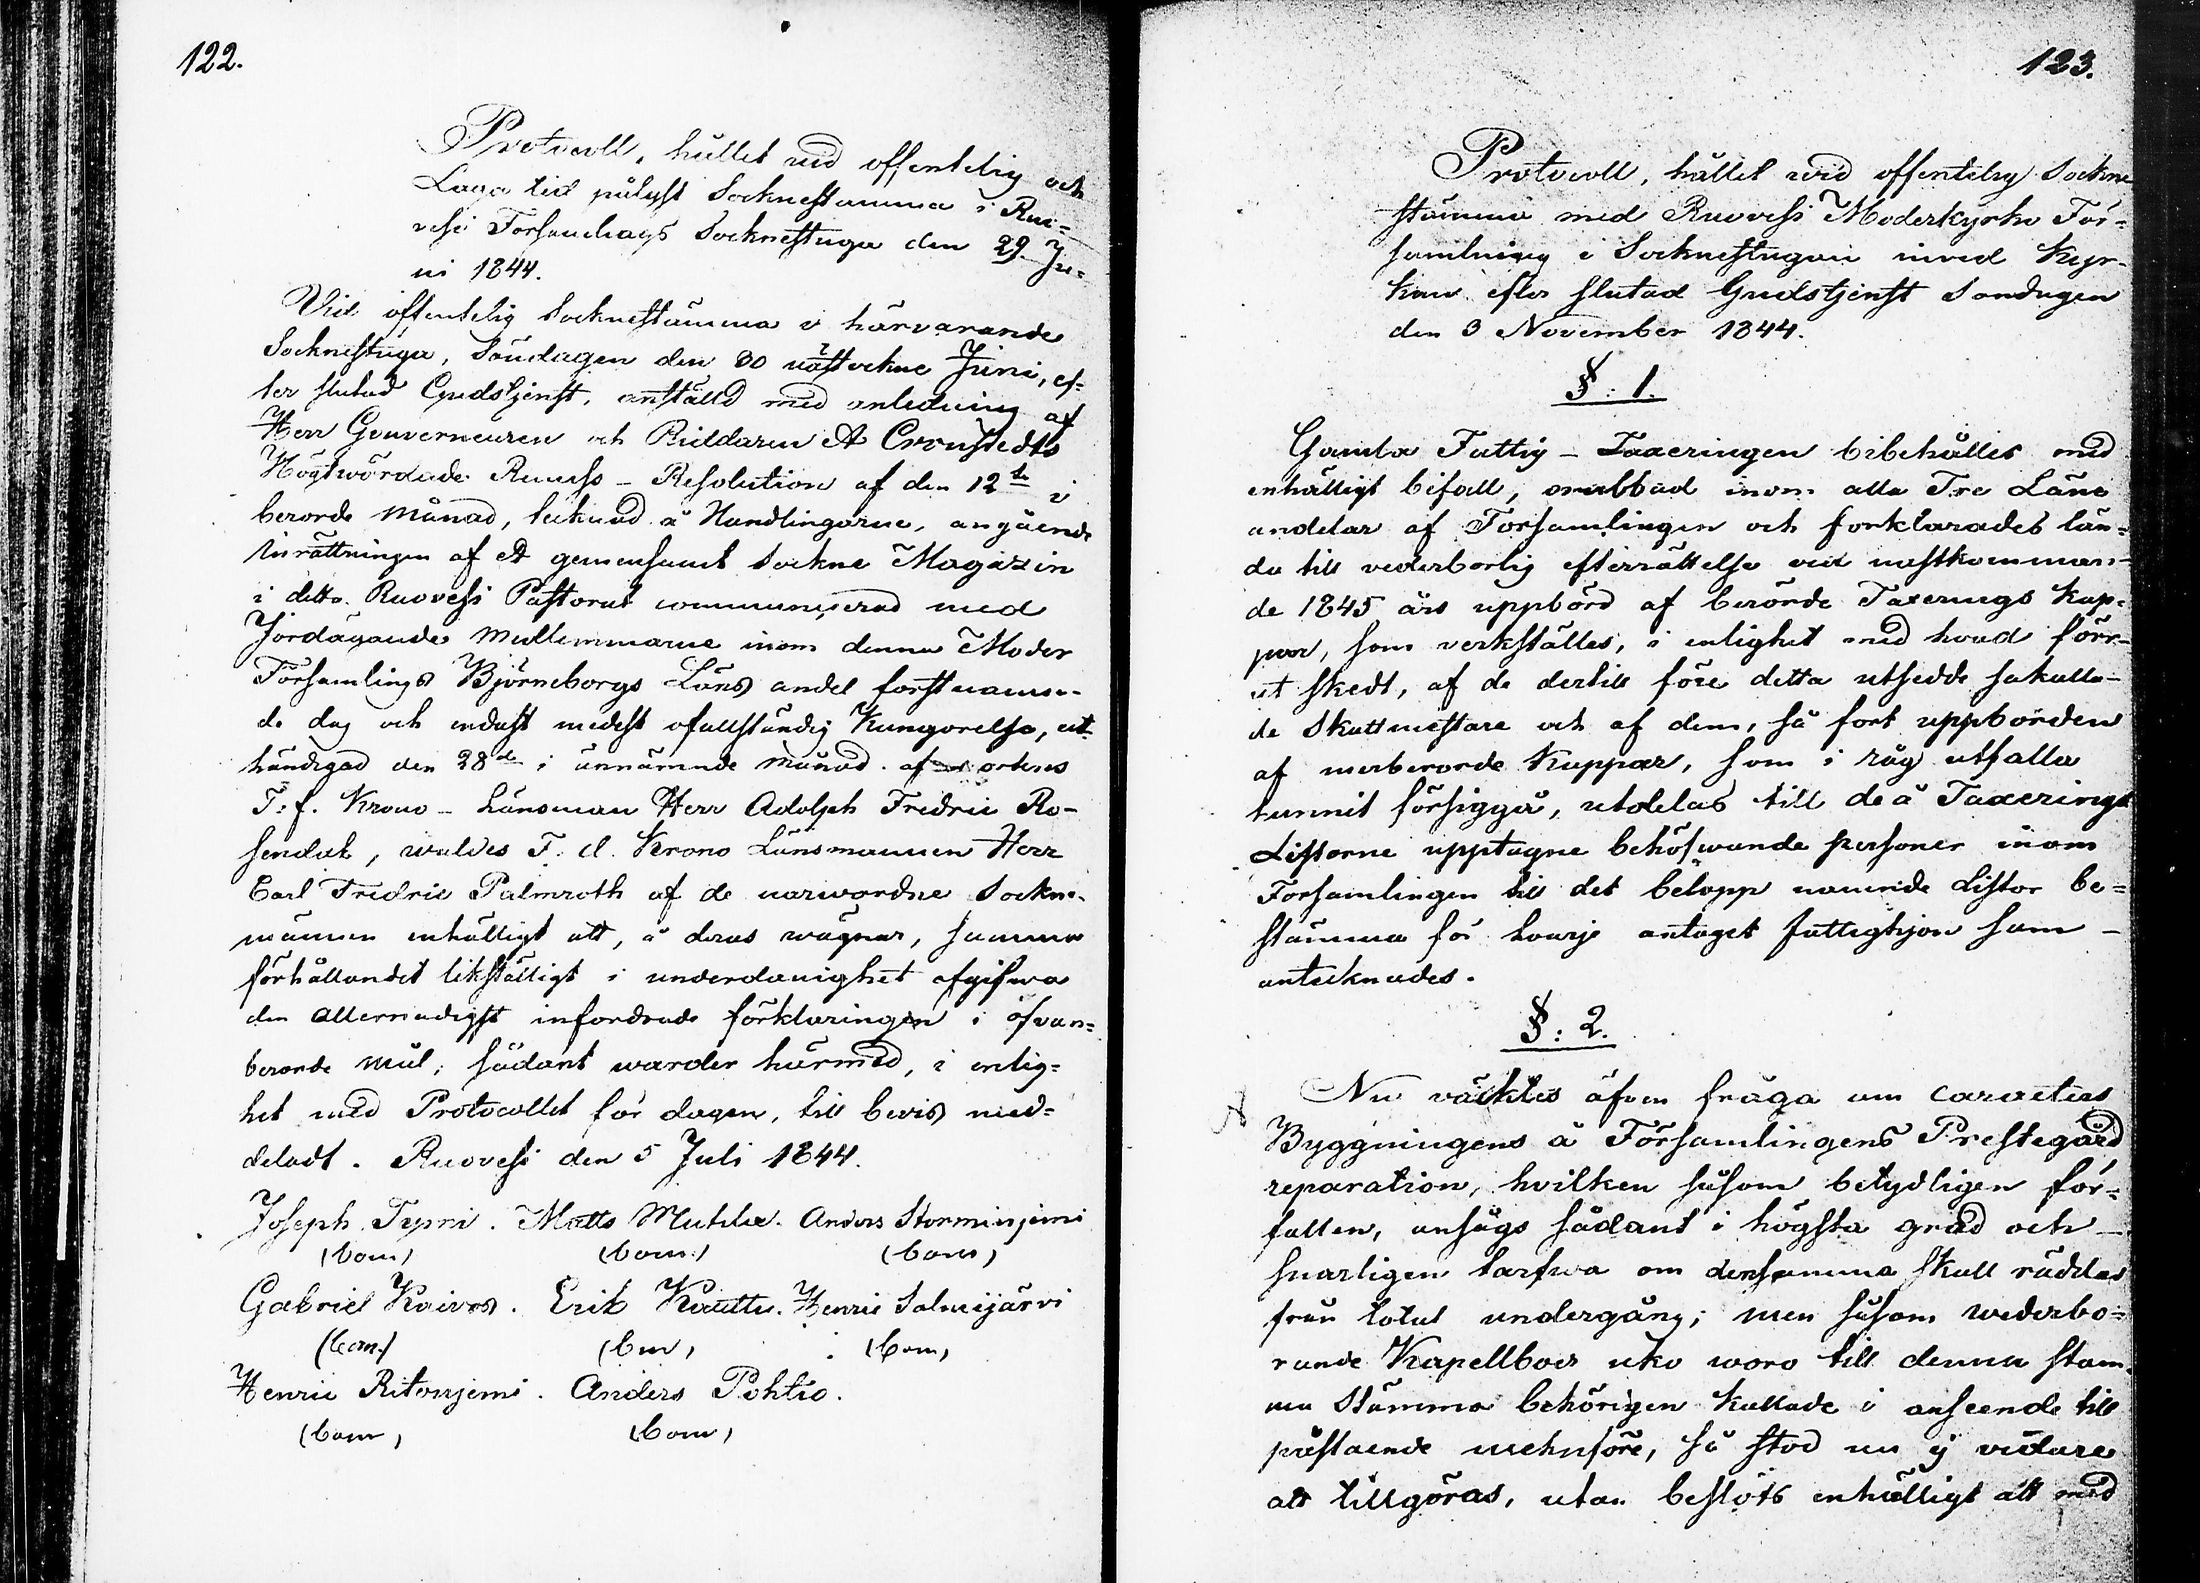 122.
Protocoll, hållet vid offentelig och
Laga tid pålyst Socknestämma i Ruo-
vesi Församlings Socknestuga den 29 Ju-
ni 1844.
Vid offentelig Socknestämma i härvarande
Socknestuga, Söndagen den 30 Juni, ef-
ter slutad Gudstjenst, anställd med anledning af
Herr Gouverneuren och Riddaren A Cronstedts
Högtwördade Remiss-Resolution af den 12te i
berörde månad, teknad å Handlingarne, angående
Inrättningen af et gemensamt Sockne Magazin
i detta Ruovesi Pastorat communiserad med
Jordägande medlemmarne inom denna Moder
Församlings Björneborgs Läns andel förstnämn-
de dag och endast medelst ofullständig Kungörelse, ut-
händigad den 28de i ännämnde månad af ortens
T: f. Krono-Länsman Herr Adolph Fredric Ro-
sendal, waldes T. d. Krono Länsmannen Herr
Carl Fredric Palmroth af de närwordne Sockne-
männen enhälligt att, å deras wägnar, samma
förhållandet likställigt i underdånighet afgifwa
den Allernådigst infordrade förklaringen i ofvan-
berörde mål; sådant warder härmed, i enlig-
het med Protocollet för dagen, till bevis med-
deladt. Ruovesi den 5 Juli 1844.
Joseph Typni. Matts Mutila. Anders Storminjemi
(bom) (bom) (bom)
Gabriel Kaivos. Erik Kauttu. Henric Salmijärvi
(bom) (bm) (bom)
Henric Ritonjemi. Anders Pohtio.
(bom) (bom)
123.
Protocoll, hållet wid offentelig Sockne
stämma med Ruovesi Moderkyrko För-
samling i Socknestugan invid Kyr-
kan efter slutad Gudstjenst Söndagen
den 3 November 1844.
§: 1.
Gamla Fattig-Taxeringen bibehålles med
enhälligt bifall, orubbad inom alla Tre Läns
andelar af Församlingen och förklarades län-
da till vederbörlig efterrättelse vid nästkomman-
de 1845 års uppbörd af berörde Taxerings Kap-
par, som verkställes, i enlighet med hvad förr-
ut skedt, af de dertill före detta utsedde så kalla-
de Skattmestare och af dem, så fort uppbörden
af merberörde Kappar, som i råg utfalla
hunnit försiggå, utdelas till de å Taxerings
Listorne upptagne behöfwande personer inom
Församlingen till det belopp nämnde Listor be-
stämma för hvarje antaget fattighjon som
antecknades.
§: 2.
Nu väcktes äfven fråga om caracters
Byggningens å Församlingens Prestegård
reparation, hvilken såsom betydligen för-
fallen, ansågs sådant i högsta grad och
snarligen tarfwa om densamma skall räddas
från total undergång; men såsom wederbö-
rande Kapellboer icke woro till denna stäm-
ma Stämma behörigen kallade i anseende till
påstående menföre, så stod nu ej vidare
att tillgöras, utan beslöts enhälligt att med